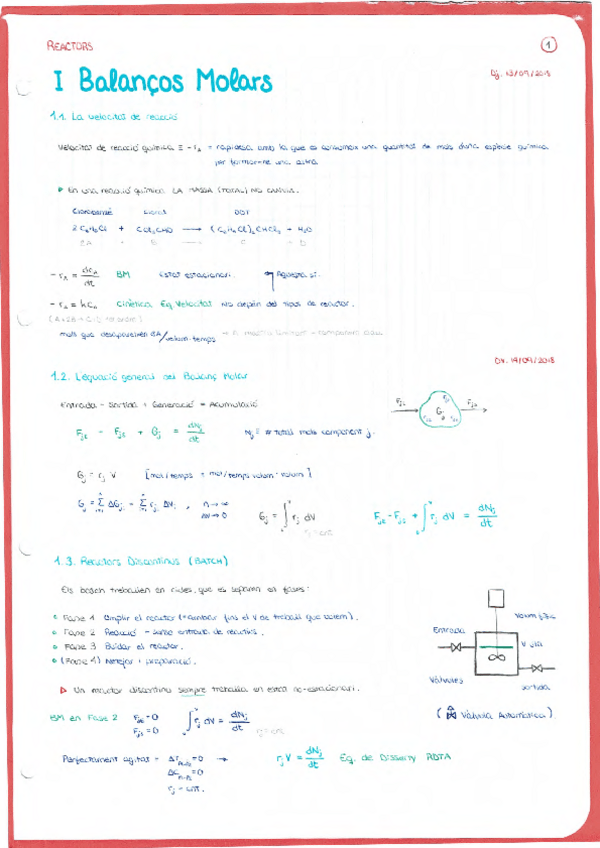 REACTORS
1
I Balanços Molars
Dj. 13/09/2018
1.1. La velocitat de reacció
Velocitat de reacció química ≡ -rA = rapidesa amb la que es consumeix una quantitat de mols d'una espècie química
per formar-ne una altra.
En una reacció química LA MASSA (TOTAL) NO CANVIA.
Clorobenzè Cloral DDT
2 C6H5Cl + CCl3CHO → (C6H4Cl)2CHCCl3 + H2O
2A + B → C + D
-rA = dCA/dt BM Estat estacionari. Aquesta sí.
-rA = kCA Cinètica Eq. Velocitat No depèn del tipus de reactor.
mols que desapareixen dA/volum·temps
Dv. 14/09/2018
1.2. L'equació general del Balanç Molar
Entrada - Sortida + Generació = Acumulació
FjE - FjS + Gj = dNj/dt Nj ≡ # total mols component j.
Fjε Gj Fjs
Gj = rj V [mol/temps = mol/temps·volum · volum]
Gj = Σ ΔGj = Σ rj ΔVi , n→∞ ΔV→0 Gj = ∫ rj dV FjE - FjS + ∫ rj dV = dNj/dt
1.3. Reactors Discontinus (BATCH)
Els batch treballen en cicles, que es separen en fases:
Fase 1 Omplir el reactor (arribar fins el V de treball que volem).
Fase 2 Reacció - sense entrada de reactius.
Fase 3 Buidar el reactor.
(Fase 4) Netejar + preparació.
Entrada
V útil
Vàlvules
Sortida
(Vàlvula Automàtica).
Un reactor discontinu sempre treballa en estat no-estacionari.
BM en Fase 2 FjE = 0 ∫ rj dV = dNj/dt
FjS = 0
Perfectament agitat = ΔT = 0 → rj V = dNj/dt Eq. de Disseny RDTA
ΔC = 0
rj = cnt.